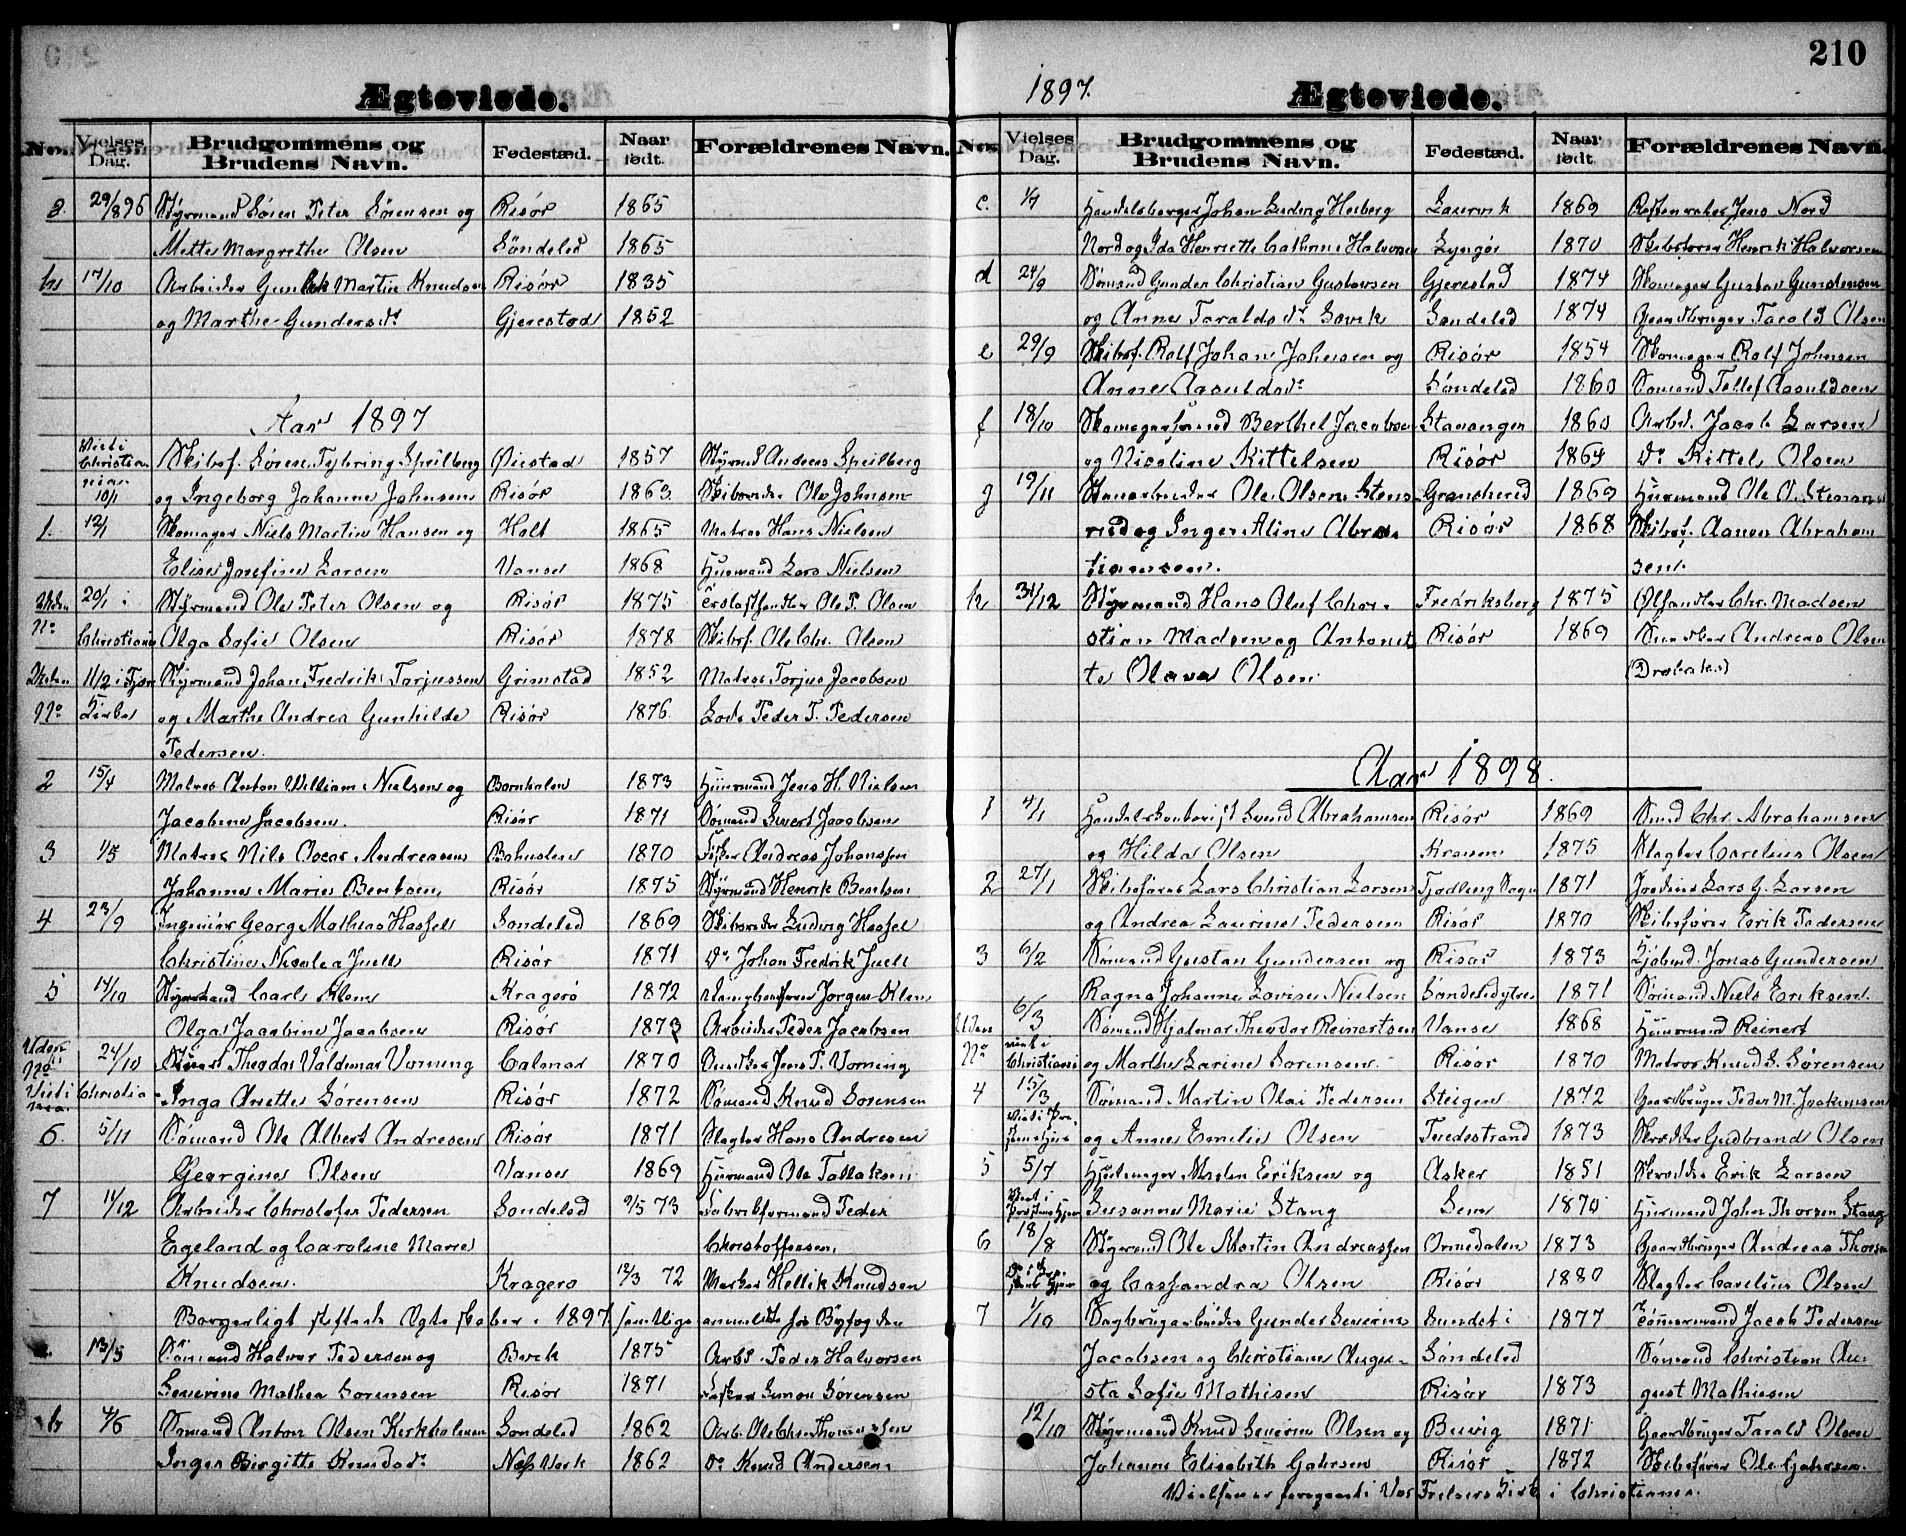 210
Ægteviede.
Nos. Vielses Dag. Brudgommens og Brudens Navn. Fødested. Naar født. Forældrenes Navn.
g. 29/8 96 Styrmand Søren Peter Sørensen og Risør 1865
Mette Margrethe Olsen Søndeled 1865
h 17/10 Arbeider Martin Knudsen Risør 1835
og Marthe Gundersdr. Gjerestad 1852
Aar 1897
Viet i Christiania 10/1 Skibsf. Søren Tybring Speilberg Øiestad 1857 Styrmd Andreas Speilberg
og Ingeborg Johanne Johnsen Risør 1863 Skibsreder Ole Johnsen
1. 12/1 Skomager Niels Martin Hansen og Holt 1865 Matros Hans Nielsen
Elise Josefine Larsen Vanse 1868 Husmand Lars Nielsen
Uden 20/1 i Styrmand Ole Peter Olsen og Risør 1875 Ole P. Olsen
No Christiania Olga Sofie Olsen Risør 1878 Skibsf. Ole Chr. Olsen
Uden 11/2 i Styrmand Johan Fredrik Torjussen Grimstad 1852 Matros Torjus Jacobsen
No og Marthe Andrea Gunhilde Risør 1876 Lods Peder T. Pedersen
Pedersen.
2 15/4 Matros Anton William Nielsen og Bornholm 1873 Huusmand Jens H. Nielsen
Jacobine Jacobsen. Risør 1871 Sømand Sivert Jacobsen
3 1/5 Matros Nils Oscar Andreasen Bohuslen 1870 Fisker Andreas Johanssen
Johanne Marie Bentsen Risør 1875 Styrmand Henrik Bentsen
4 23/9 Ingeniør Georg Mathias Hassel Søndeled 1869 Skibsreder Ludvig Hassel
Christine Nicolea Juell Risør 1871 Do Johan Fredrik Juell
5 14/10 Styrmand Carl Klem Kragerø 1872 Jørgen Klem
Olga Jacobine Jacobsen Risør 1873 Arbeider Peder Jacobsen
Uden No 24/10 Theodor Valdemar Vorning Calmar 1870 Jens P. Vorning
Viet i Christiania Inga Anette Sørensen Risør 1872 Sømand Knud Sørensen
6. 5/11 Sømand Ole Albert Andresen Risør 1871 Slagter Hans Andresen
Georgine Olsen Vanse 1869 Husmand Ole Tallaksen
7 11/12 Arbeider Christofer Pedersen Søndeled 9/5 73 Fabrikformand Peder
Egeland og Carolene Marie Christoffersen.
Knudsen. Kragerø 12/3 72 Hellik Knudsen
Borgerligt stiftede Ægteskaber i 1897 samtlige anmeldte for Byfogden
a. 13/5 Sømand Halvor Pedersen og 1875 Arbd. Peder Halvorsen
Severine Mathea Sørensen Risør 1871 Fisker Simon Sørensen
b 4/6 Sømand Anton Olsen Kirkholmen Søndeled 1862 Arb. Ole Chr. Thomassen
Inger Birgitte Knudsdr. Næs Verk 1862 Do Knud Andersen.
1897.
Ægteviede.
Nos. Vielses Dag. Brudgommens og Brudens Navn. Fødested. Naar født. Forældrenes Navn.
c. 1/7 Handelsborger Johan Ludvig Heiberg Laurvik 1869 Jens Nord
Nord og Ida Henriette Cathrine Halvorsen Lyngør 1870 Skibsfører Henrik Halvorsen
d 24/9 Sømand Gunder Christian Gustavsen Gjerestad 1874 Skomager Gustav Gundersen
og Anne Taraldsdr. Søndeled 1874 Gaardbruger Tarald Olsen
e 29/9 Skibsf. Rolf Johan Johnsen og Risør 1854 Skomager Rolf Johnsen
Anne Aasuldsdr. Søndeled 1860 Sømand Tellef Aasuldsen
f 18/10 Skomagersvend Berthel Jacobsen Stavanger 1860 Arbd. Jacob Larsen
og Nicoline Kittelsen Risør 1864 Do Kittel Olsen
g 19/11 Stenarbeider Ole Olsen Stens- Gransherred 1869 Husmand Ole O. Stensrud
rud og Inger Aline Abra- Risør 1868 Skibsf. Aanon Abraham
hamsen. sen.
h 31/12 Styrmand Hans Oluf Chri- Fredriksberg 1875 Ølhandler Chr. Madsen
stian Madsen og Antonet Risør 1869 Snedker Andreas Olsen
te Olava Olsen.
Aar 1898.
1 4/1 Handelskontorist Svend Abrahamsen Risør 1869 Smed Chr. Abrahamsen
og Hilda Olsen 1875 Slagter Carelius Olsen
2 27/1 Skibsfører Lars Christian Larsen 1871 Lars G. Larsen
og Andrea Laurine Pedersen Risør 1870 Skibsfører Erik Pedersen
3 6/2 Sømand Gustav Gundersen og Risør 1873 Jonas Gundersen
Ragna Johanne Lovise Nielsen 1871 Sømand Niels Eriksen.
Uden 6/3 Sømand Hjalmar Theodor Reinertsen Vanse 1868 Huusmand Reinert
No viet i Christiania og Marthe Larine Sørensen. Risør 1870 Matros Knud S. Sørensen
4 15/3 Sømand Martin Olai Pedersen Steigen 1872 Gaardbruger Peder M. Joakimsen
Viet i og Anne Emelie Olsen Tvedestrand 1873 Skredder Gudbrand Olsen
5 5/7 Hjulmager Eriksen og Asker 1851 Skredder Erik Larsen
Viet i Susanne Marie Stang Sem 1870 Huusmand John Thorsen Stang
6 18/8 Styrmd Ole Martin Andreassen Ormedalen 1873 Gaardbruger Andreas
og Cassandra Olsen Risør 1880 Slagter Carelius Olsen
7 1/10 Sagbrugarbeider Gunder Severin Sundet i 1877 Tømmermand Jacob Pedersen
Jacobsen og Christiane Augu- Søndeled Sømand Christian Au-
sta Sofie Mathisen Risør 1873 gust Mathiesen
12/10 Styrmand Knud Severin Olsen og Buvig 1871 Gaardbruger Tarald Olsen
Johanne Elisabeth Risør 1872 Skibsfører Ole
Vielsen er foregaaet i Vor Frelsers Kirke i Christiania.